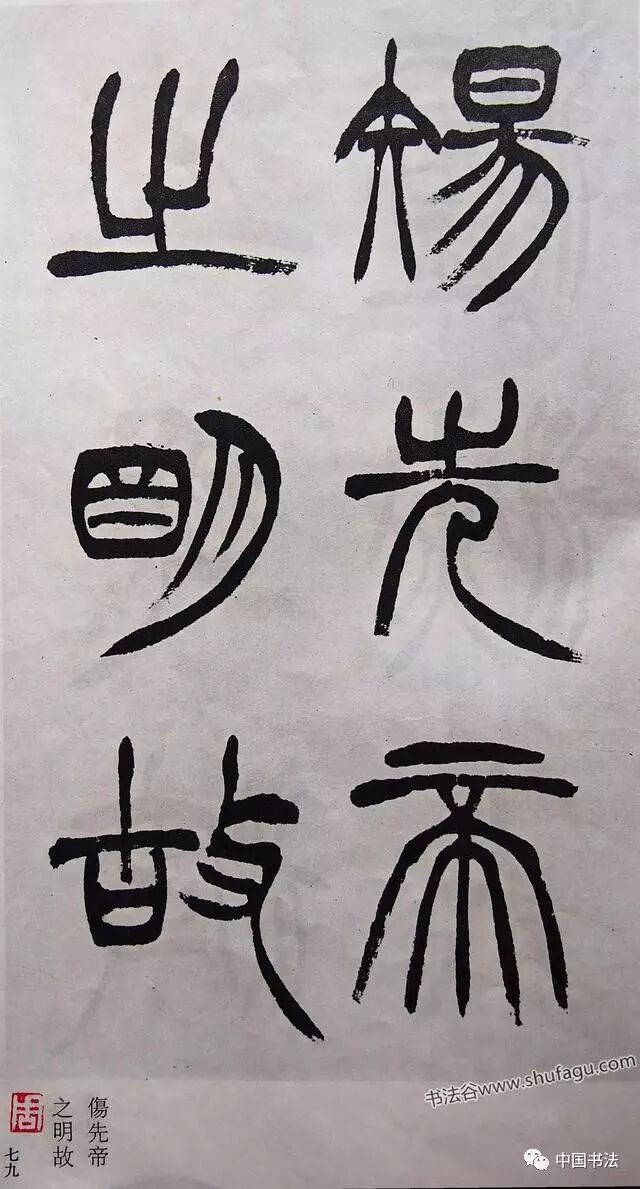 傷先帝
之明故
書法谷www.shufagu.com
傷先帝
之明故
七九
中国书法